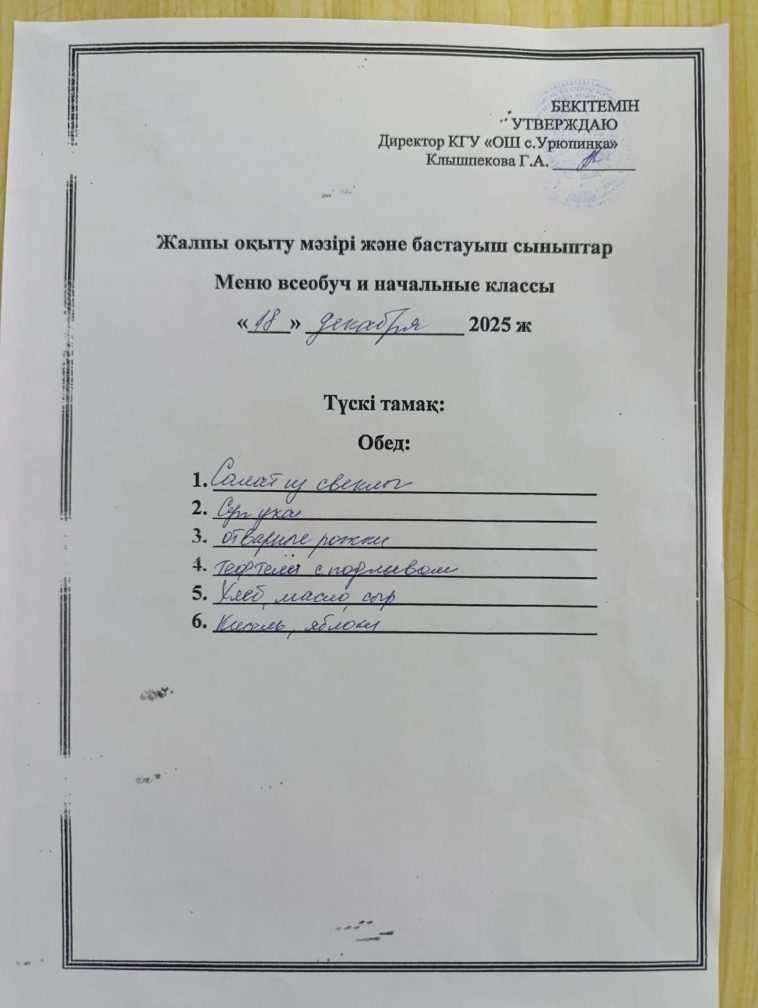 БЕКІТЕМІН
УТВЕРЖДАЮ
Директор КГУ «ОШ с.Урюпинка»
Клышпекова Г.А.
Жалпы оқыту мәзірі және бастауыш сыныптар
Меню всеобуч и начальные классы
«18» декабря 2025 ж
Түскі тамақ:
Обед:
1. Салат из свеклы
2. Суп уха
3. отварные рожки
4. тефтели с подливом
5. Хлеб, масло, сыр
6. Кисель, яблоки